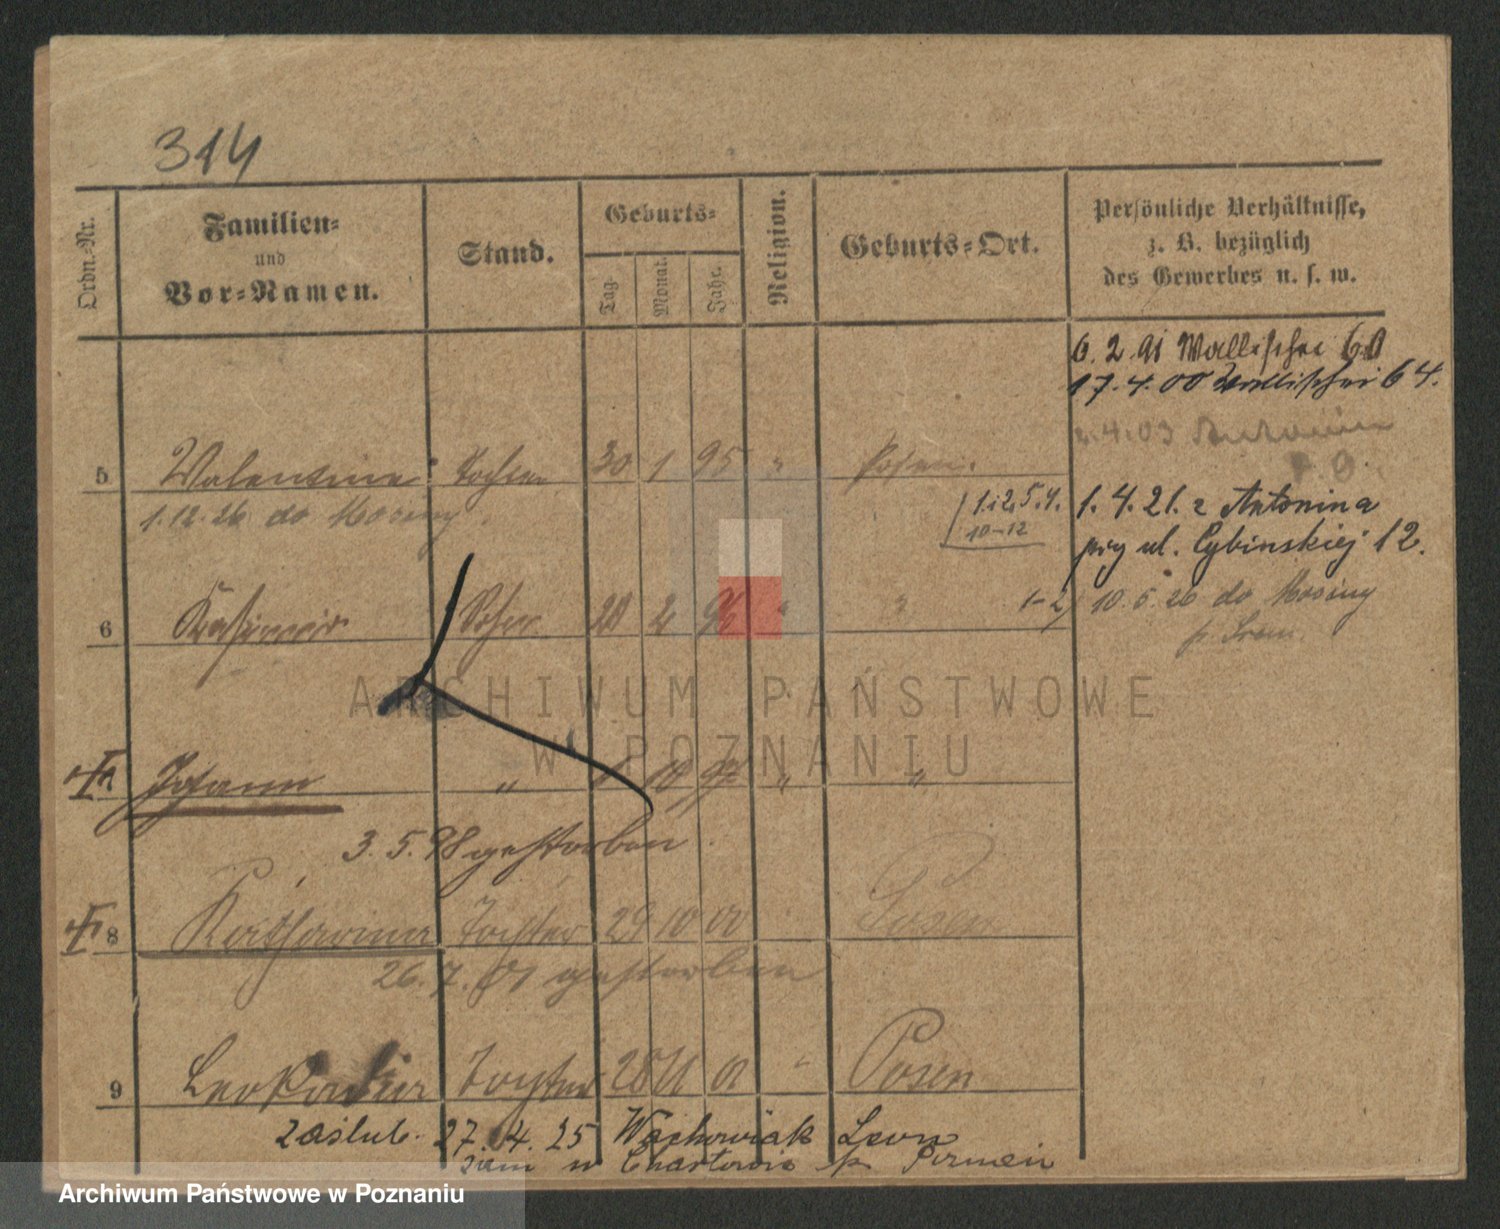 314
Ordn.-Nr.
Familien-
und
Vor-Namen.
Stand.
Geburts-
Tag.
Monat.
Jahr.
Religion.
Geburts-Ort.
Persönliche Verhältnisse,
z. B. bezüglich
des Gewerbes u. s. w.
6. 2. 91 Wallischei 60
17. 4. 00 Wallischei 64.
4. 03
5 Valentina Tochter 30 1 95 " Posen.
1.12.26 do Mosiny.
1 i 2, 5. 4.
10-12
1. 4. 21. z Antonina
przy ul. Cybinskiej 12.
6 Kasimir Sohn 2 96 " "
1-2) 10. 5. 26 do Mosiny
p. Śrem.
Johann " 10 97 " "
3. 5. 98 gestorben.
8 Katharina Tochter 29 10 00 Posen
26. 7. 01 gestorben
9 Leokadia Tochter 28 11 01 " Posen
zaślub. 27. 4. 25 Wachowiak Leon
zam w Chartowie p.
ARCHIWUM PAŃSTWOWE
W POZNANIU
Archiwum Państwowe w Poznaniu